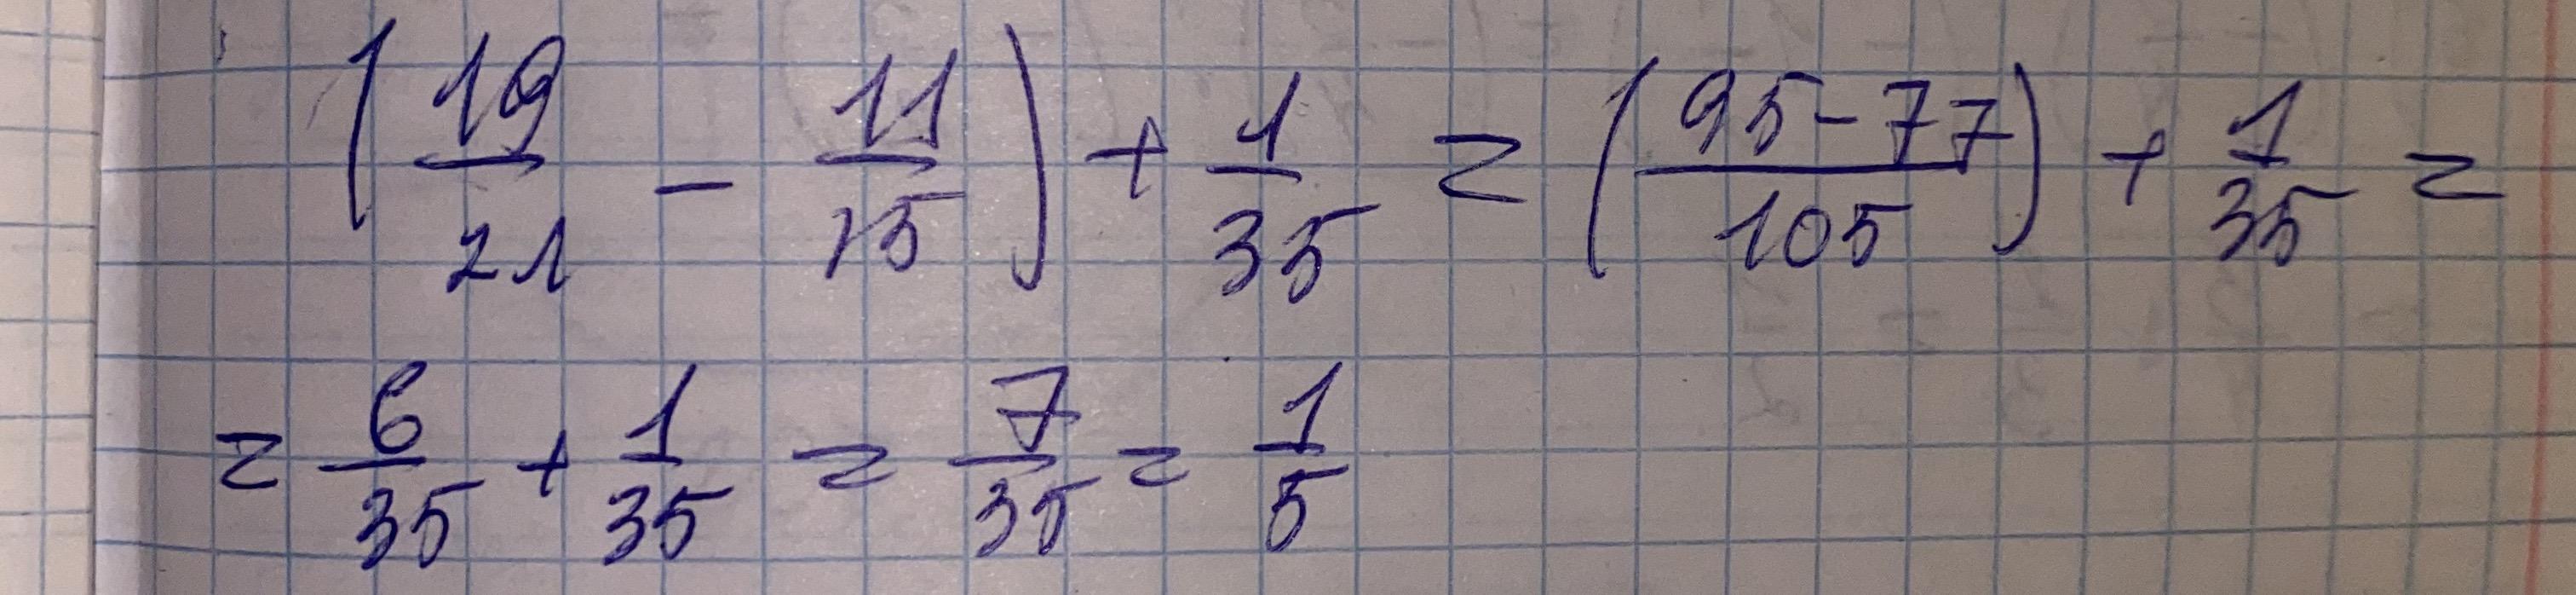 (19/21 - 11/15) + 1/35 = (95-77/105) + 1/35 =
= 6/35 + 1/35 = 7/35 = 1/5